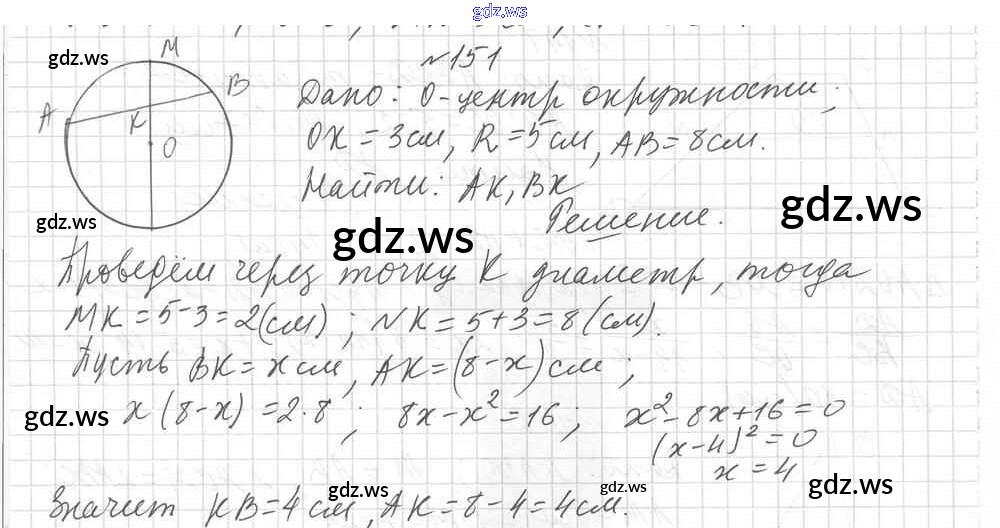 gdz.ws
№151
gdz.ws
M
B
A
K
O
Дано: O-центр окружности;
OK = 3см, R = 5см, AB = 8см.
Найти: AK, BK
gdz.ws
gdz.ws
gdz.ws
Решение.
Проведём через точку K диаметр, тогда
MK = 5-3 = 2(см) ; NK = 5+3 = 8(см).
Пусть BK = x см, AK = (8-x) см ;
gdz.ws
x(8-x) = 2·8 ; 8x-x² = 16 ; x²-8x+16 = 0
(x-4)² = 0
x = 4
gdz.ws
gdz.ws
gdz.ws
Значит KB = 4см, AK = 8-4 = 4см.